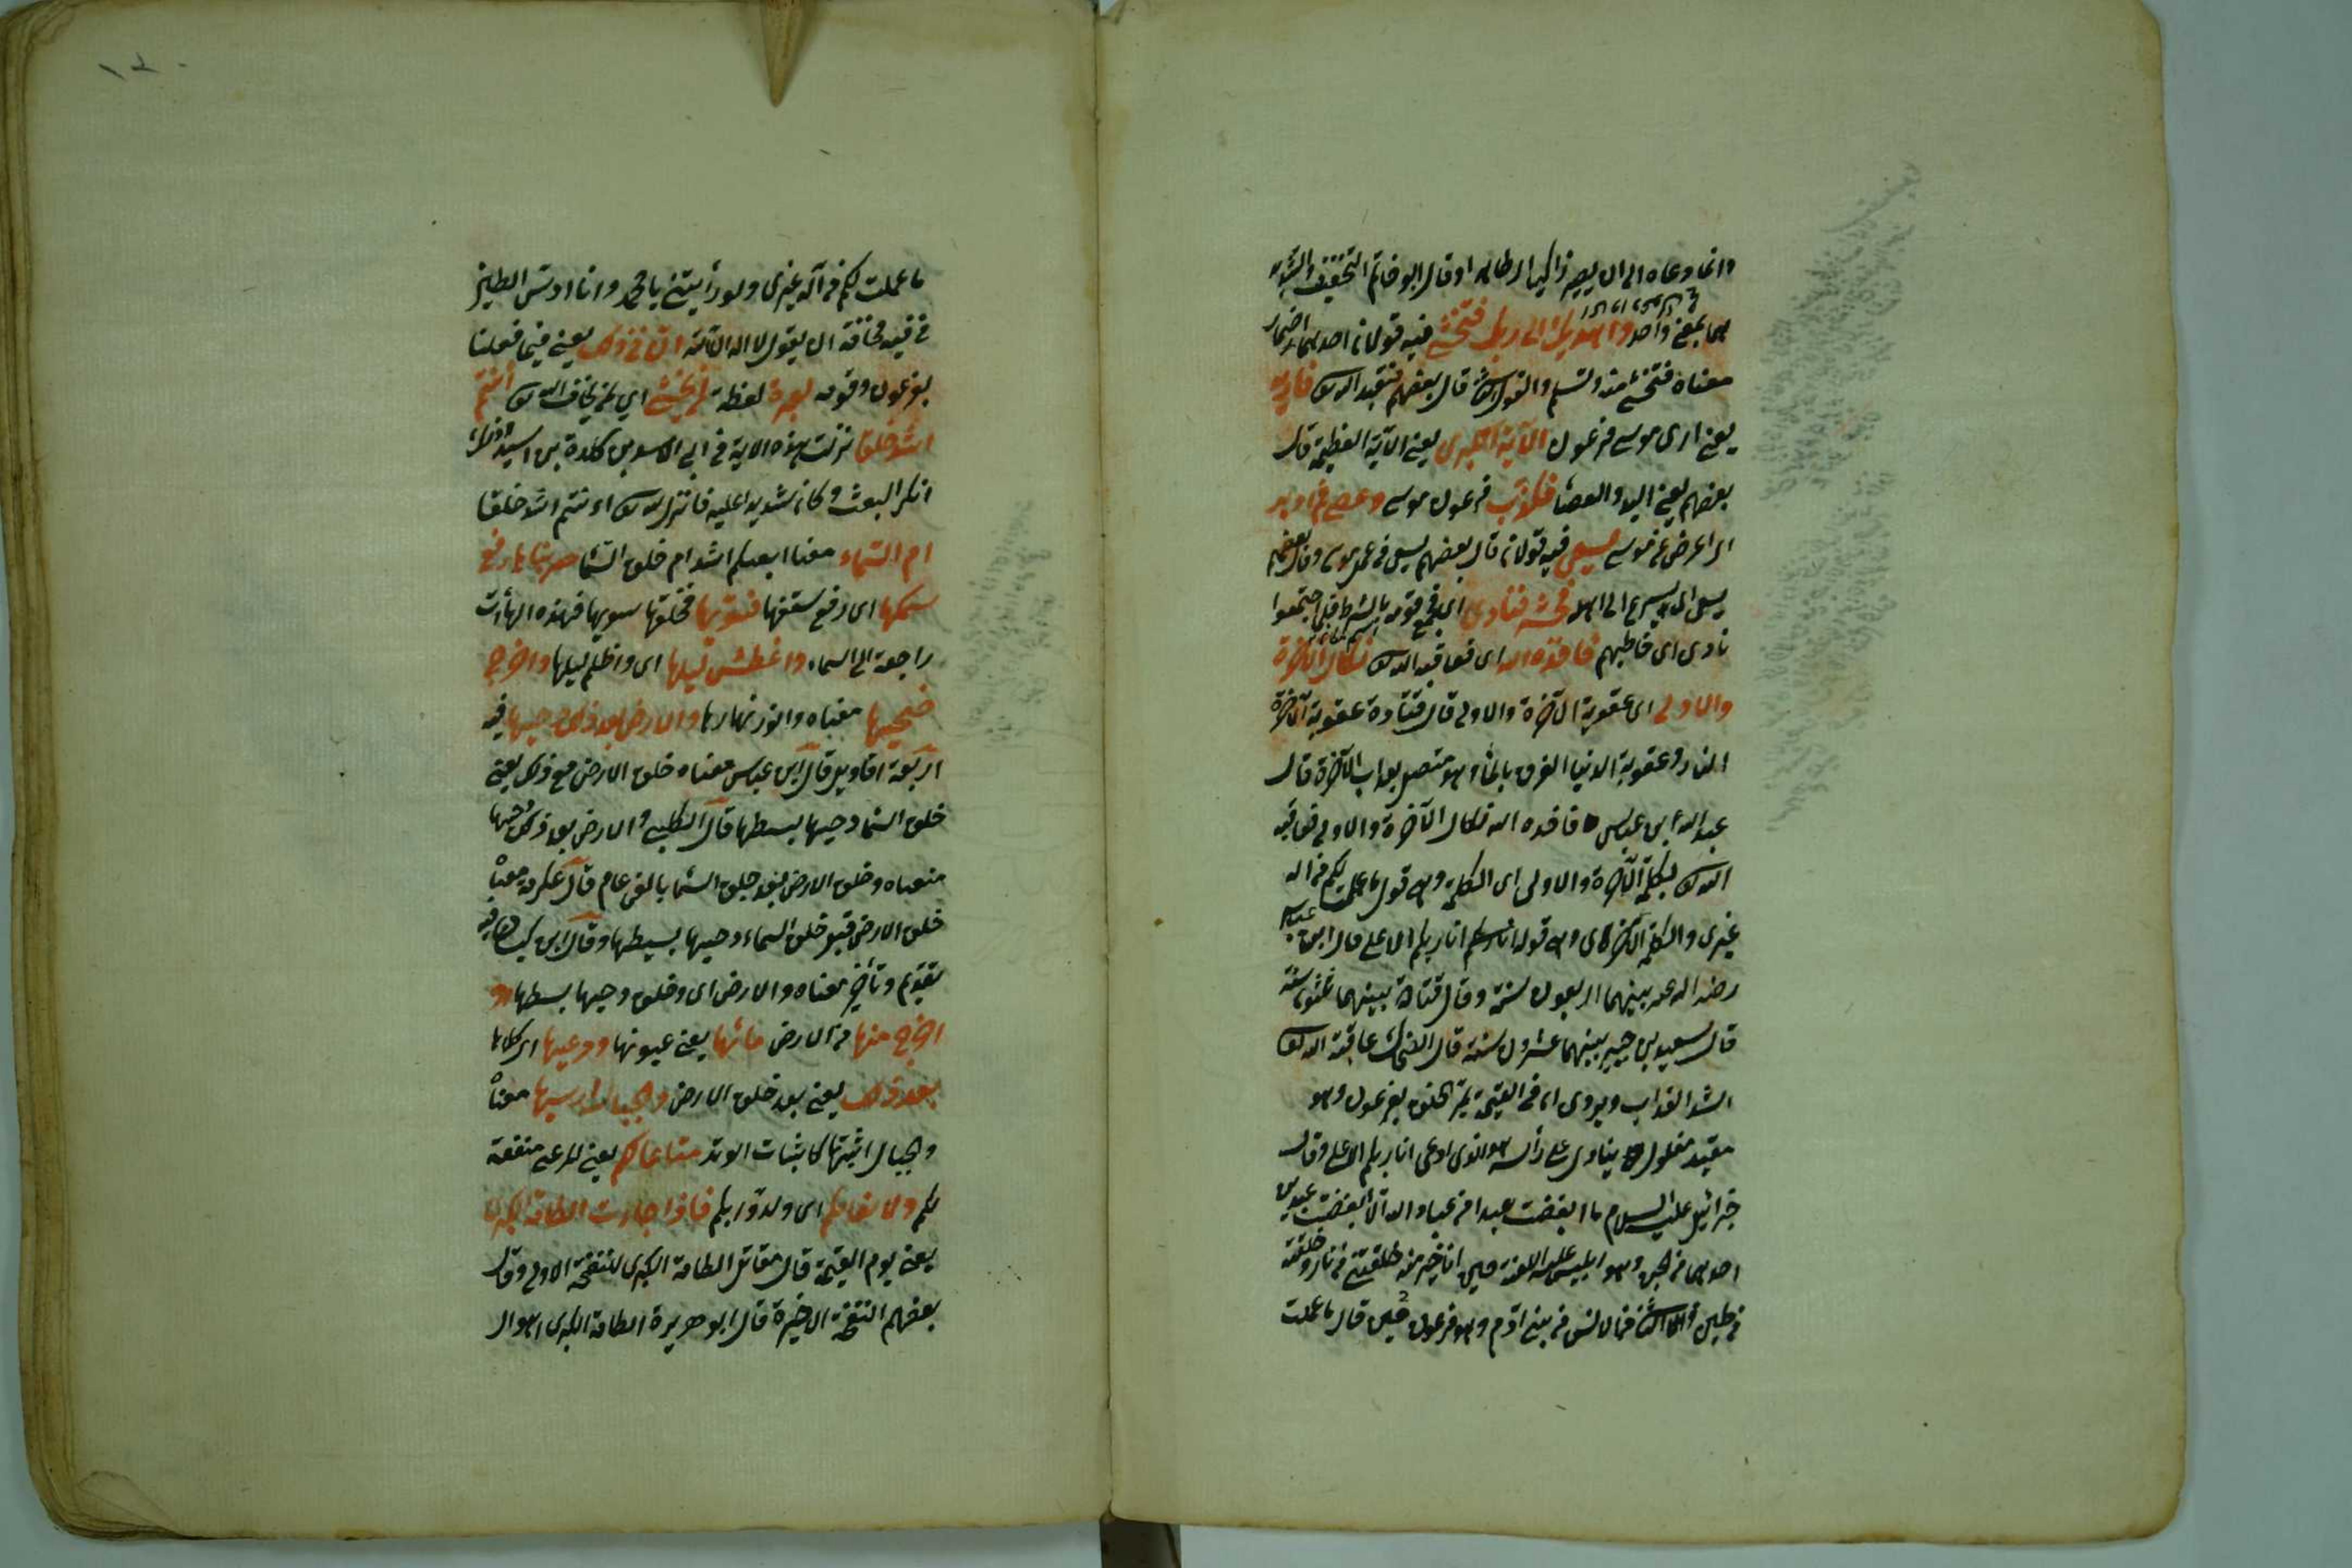 وانما دعاه الى ان يصير زاكيا او قال ابو حاتم التخفيف والتشديد
بهما بمعنى واحد واهديك الى ربك فتخشى فيه قولان احدهما اضمار
معناه فتخشى منه وتسلم والقول الثانى قال بعضهم فتعبد الله تعالى فاريه
يعنى ارى موسى فرعون الآية الكبرى يعنى الآية العظيمة قال
بعضهم يعنى اليد والعصا فكذب فرعون موسى وعصى ثم ادبر
اى اعرض عن موسى يسعى فيه قولان قال بعضهم يسعى فى عمل موسى وقال بعضهم
يسعى اى يسرع الى اهله فحشر فنادى اى فجمع قومه بالشرط قبل اجتمعوا
نادى اى خاطبهم فاخذه الله اى فعاقبه الله تعالى نكال الآخرة
والاولى اى عقوبة الآخرة والاولى قال قتادة عقوبة الآخرة
النار وعقوبة الدنيا الغرق بالماء وهو متصل بعذاب الآخرة قال
عبد الله ابن عباس فاخذه الله نكال الآخرة والاولى فعاقبه
الله تعالى بكلمة الآخرة والاولى اى الكلمة وهى قول ما علمت لكم من اله
غيرى والكلمة الاخرى وهى قوله انا ربكم الاعلى قال ابن عباس
رضى الله عنه بينهما اربعون سنة وقال قتادة بينهما ثلثون سنة
قال سعيد بن جبير بينهما عشرون سنة قال الضحاك عاقبه الله تعالى
اشد العذاب ويروى ان فى القيمة يمر الخلق بفرعون وهو
مقيد مغلول ينادى على رأسه هو الذى ادعى انا ربكم الاعلى وقال
جبرائيل عليه السلام ما ابغضت عبدا من عباد الله الا ابغضت عبدين
احدهما من الجن وهو ابليس عليه اللعنة حين انا خير منه خلقتنى من نار وخلقته
من طين والثانى من الانس من بنى آدم وهو فرعون حين قال ما علمت
ما علمت لكم من آله غيرى ولو رأيتنى يا محمد وانا ادس الطين
فى فيه مخافة ان يقول لا اله الا الله ان فى ذلك يعنى فيما فعلنا
بفرعون وقومه لعبرة لعظة لمن يخشى اى لمن يخاف الله تعالى أانتم
اشد خلقا نزلت هذه الاية فى ابى الاسد بن كلدة بن اسيد وذلك
انكر البعث وكان شديدا عليه فانزل الله تعالى ءانتم اشد خلقا
ام السماء معنا ابعثكم اشد ام خلق السما بناها رفع
سمكها اى رفع سقفها فسويها فخلقها سويها فهذه الهاءت
راجعة الى السماء واغطش ليلها اى واظلم ليلها واخرج
ضحيها معناه وانور نهارها والارض بعد ذلك دحيها فيه
اربعة اقاويل قال ابن عباس معناه خلق الارض مع ذلك يعنى
خلق السما دحيها بسطها قال الكلبى والارض بعد ذلك دحيها
معناه وخلق الارض بعد خلق السما بالفى عام قال عكرمة معناه
خلق الارض قبل خلق السماء ودحيها بسطها وقال ابن كيسان فيه
تقديم وتأخير معناه والارض اى وخلق دحيها بسطها
اخرج منها من الارض مائها يعنى عيونها ومرعيها اى كلاها
بعد ذلك يعنى بعد خلق الارض والجبال ارسيها معناه
والجبال اثبتها كاثبات الوتد متاعا لكم يعنى المرعى منفعة
لكم ولانعامكم اى ولدوابكم فاذا جاءت الطامة الكبرى
يعنى يوم القيمة قال مقاتل الطامة الكبرى النفخة الاولى وقال
بعضهم النفخة الاخيرة قال ابو هريرة الطامة الكبرى اهوال